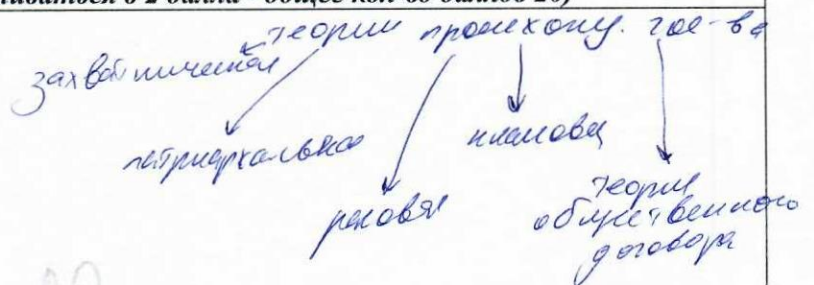 2 балла – общее кол-во баллов 20)
теории происхожд. гос-ва
захватническая
патриархальная
теория
общественного
договора